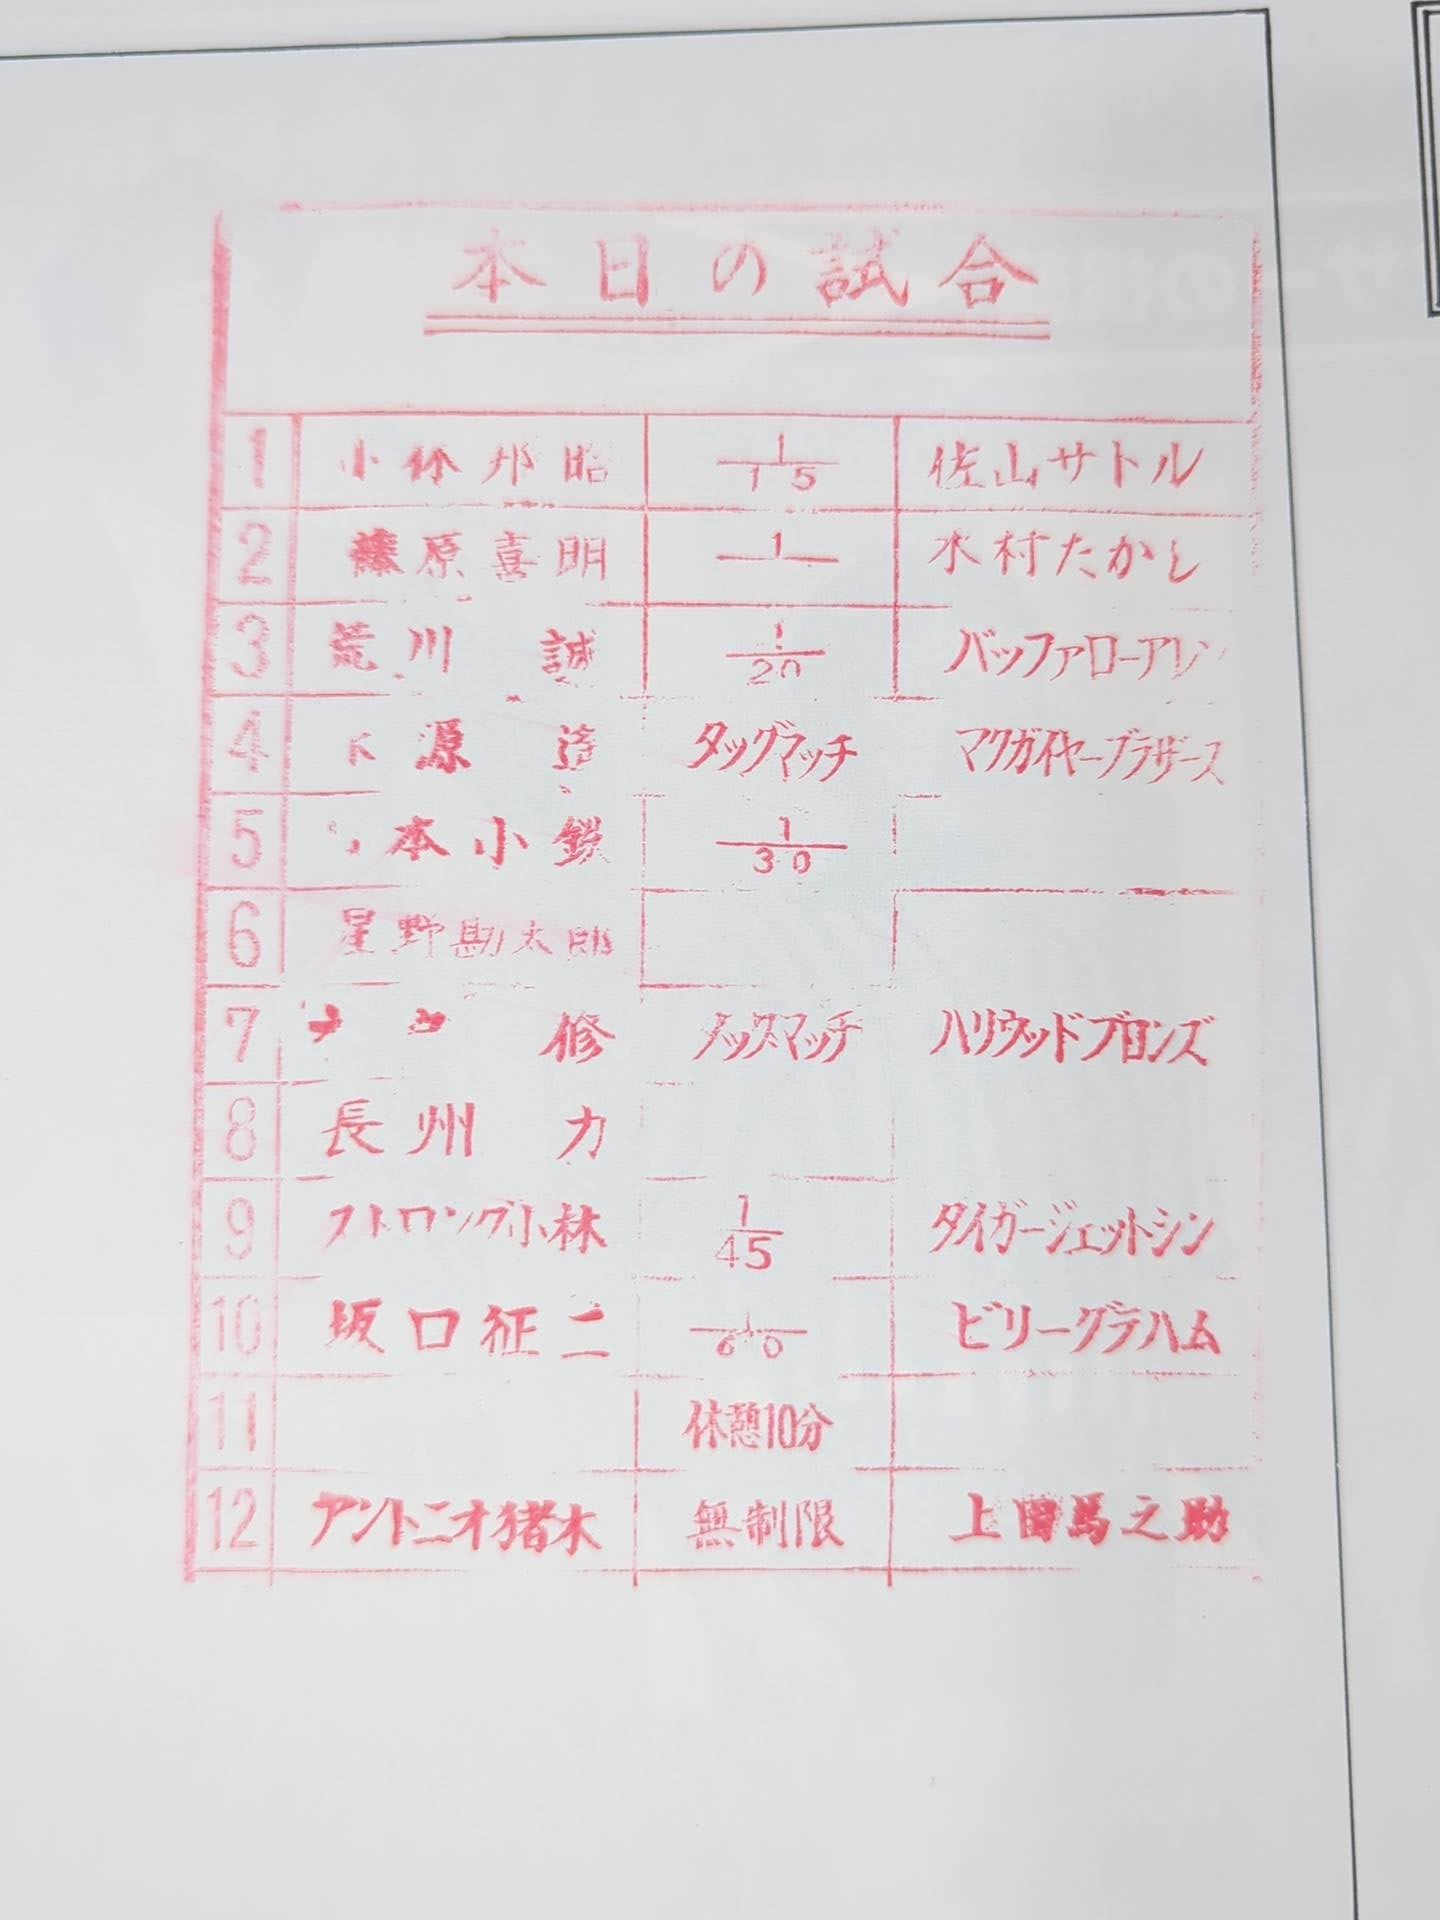 本日の試合
1 小林邦昭 1/15 佐山サトル
2 藤原喜明 1 木村たかし
3 荒川 誠 1/20 バッファローアレン
4 源 タッグマッチ マクガイヤーブラザース
5 本小鉄 1/30
6 星野勘太郎
7 修 タッグマッチ ハリウッドブロンズ
8 長州 力
9 ストロング小林 1/45 タイガージェットシン
10 坂口征二 1/60 ビリーグラハム
11 休憩10分
12 アントニオ猪木 無制限 上田馬之助